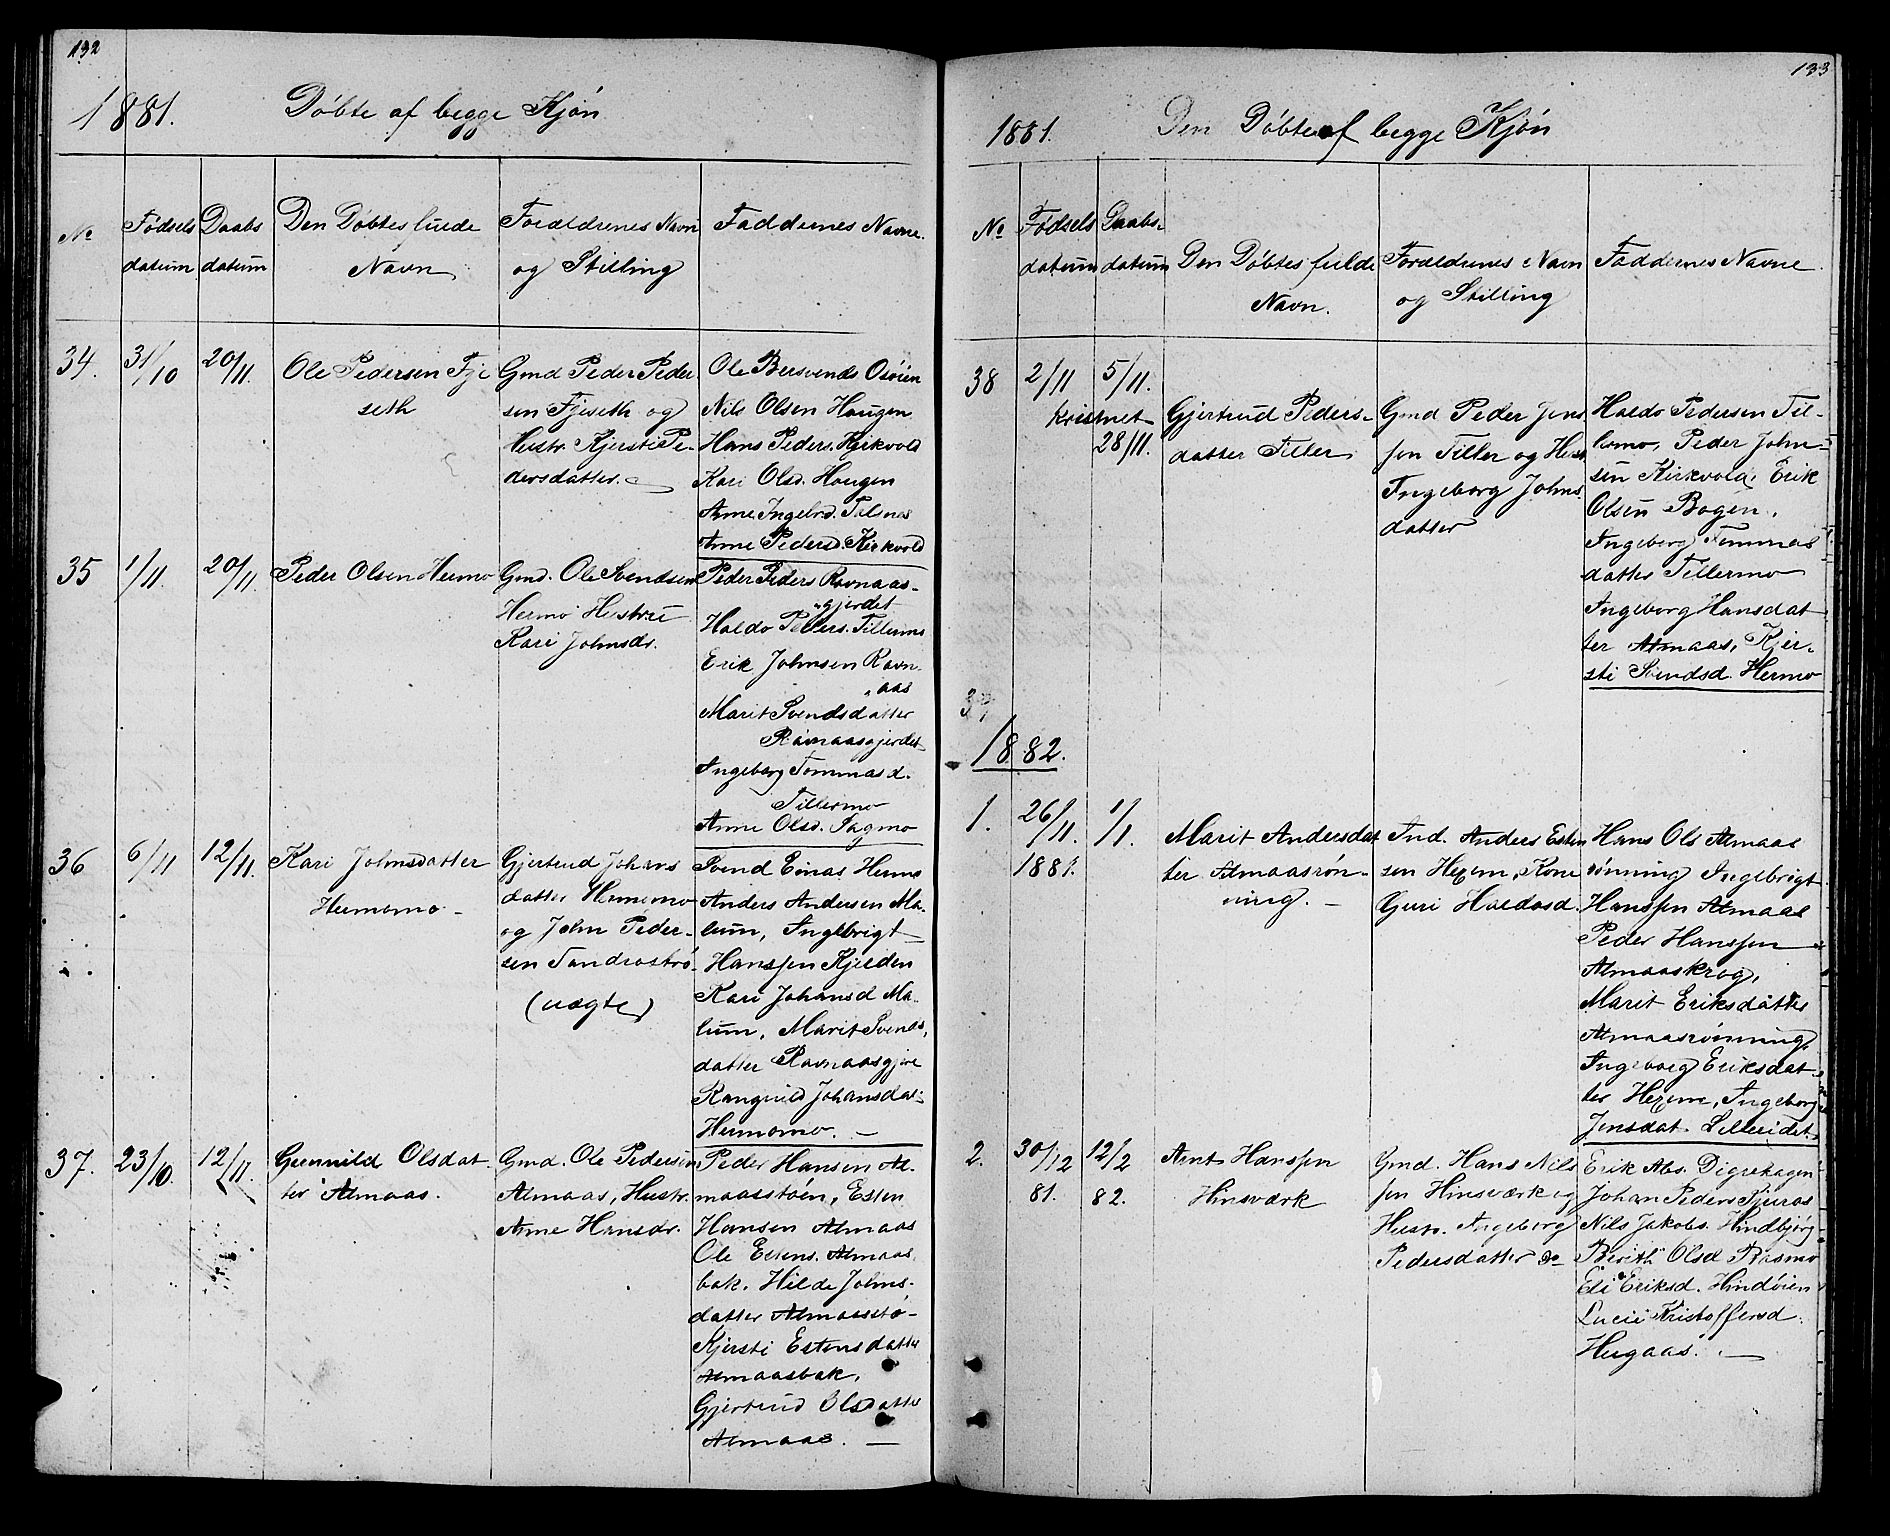 132
1881. Döbte af begge Kjön
No
Fødsels datum
Daabs datum
Den Döbtes fulde Navn
Forældrenes Navn og Stilling
Faddernes Navne.
34. 31/10 20/11.
Ole Pedersen Fje
seth
Gmd Peder Peder
sen Fjeseth og
Hustr. Kjersti Pe-
dersdatter.
Ole Bersvends Osöien
Nils Olsen Haugen
Hans Peders. Kirkvold
Kari Olsd. Haugen
Anne Ingebrd. Telsnes
Anne Pedersd. Kirkvold
35 1/11. 20/11.
Peder Olsen Hermo
Gmd. Ole Svendsen
Hermo Hustru
Kari Johnsdr.
Peder Peders Ravnaas-
gjerdet
Haldo Peders. Tillermo
Erik Johnsen Ravn
aas
Marit Svendsdatter
Ravnaasgjerdet
Ingeborg Tommasd.
Tillermo
Anne Olsd. Sagmo
36 6/11 12/11.
Kari Johnsdatter
Hermomo -
Gjertrud Johans
datter Hermomo
og John Peder-
sen Sandrostrø
(uægte)
Svend Einas Hermo
Anders Andersen Ma-
lum, Ingebrigt
Hanssen Kjelden
Kari Johansd Ma-
lum, Marit Svends,
datter Ravnaasgjere
Rangnild Johansdat-
Hermomo. -
37. 23/10. 12/11.
Gunnild Olsdat
ter Almaas.
Gmd. Ole Pedersen
Almaas, Hustr.
Anne Hansdr.
Peder Hansen Al-
maasstöen, Esten
Hansen Almaas
Ole Estens. Almaas
bak. Hilde Johns-
datter Almaasstö-
Kjersti Estensdatter
Almaasbak,
Gjertrud Olsdatter
Almaas. -
133
1881. Den Döbte af begge Kjön
No
Fødsels datum
Daabs datum
Den Döbtes fulde Navn.
Forældrenes Navn og Stilling
Faddernes Navne.
38 2/11 5/11.
kristnet
28/11.
Gjertrud Peders-
datter Tiller
Gmd Peder Jens
sen Tiller og Hust
Ingeborg Johns
datter
Haldo Pedersen Til-
lermo, Peder John-
sen Kirkvold, Erik
Olsen Bogen,
Ingeborg Tommas
datter Tillermo
Ingeborg Hansdat
ter Almaas, Kjer-
sti Svendsd. Hermo
39
1882.
1. 26/11. 1/1.
1881.
Marit Andersdat
ter Almaasrön-
ning. -
Ind. Anders Esten
sen Hexem, Kone
Guri Haldosd.
Hans Ols Almaas
rönning Ingebrigt
Hanssen Almaas
Peder Hanssen
Almaaskrog,
Marit Eriksdatter
Almaasrönning,
Ingeborg Eriksdat
ter Hexem, Ingeborg
Jensdat. Lilleridet.
2. 30/12 12/2
81. 82.
Arnt Hanssen
Hinsværk
Gmd. Hans Nils
sen Hinsværk og
Hustr. Ingeborg
Pedersdatter
Erik Abs. Digrehagen
Johan Peders Kjeraas
Nils Jakobs. Hindbjörg
Berith Olsd Rasmo
Eli Eriksd. Hindöien
Lucie Kristoffersd.
Hugaas. -